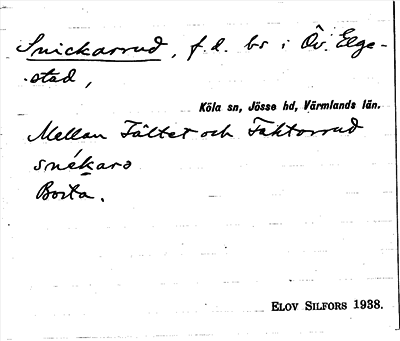 Snickarrud, f. d. bs i Öv. Elge-
stad,
Köla sn, Jösse hd, Värmlands län.
Mellan Tältet och Faktorrud
snékaro
Borta.
ELOV SILFORS 1938.